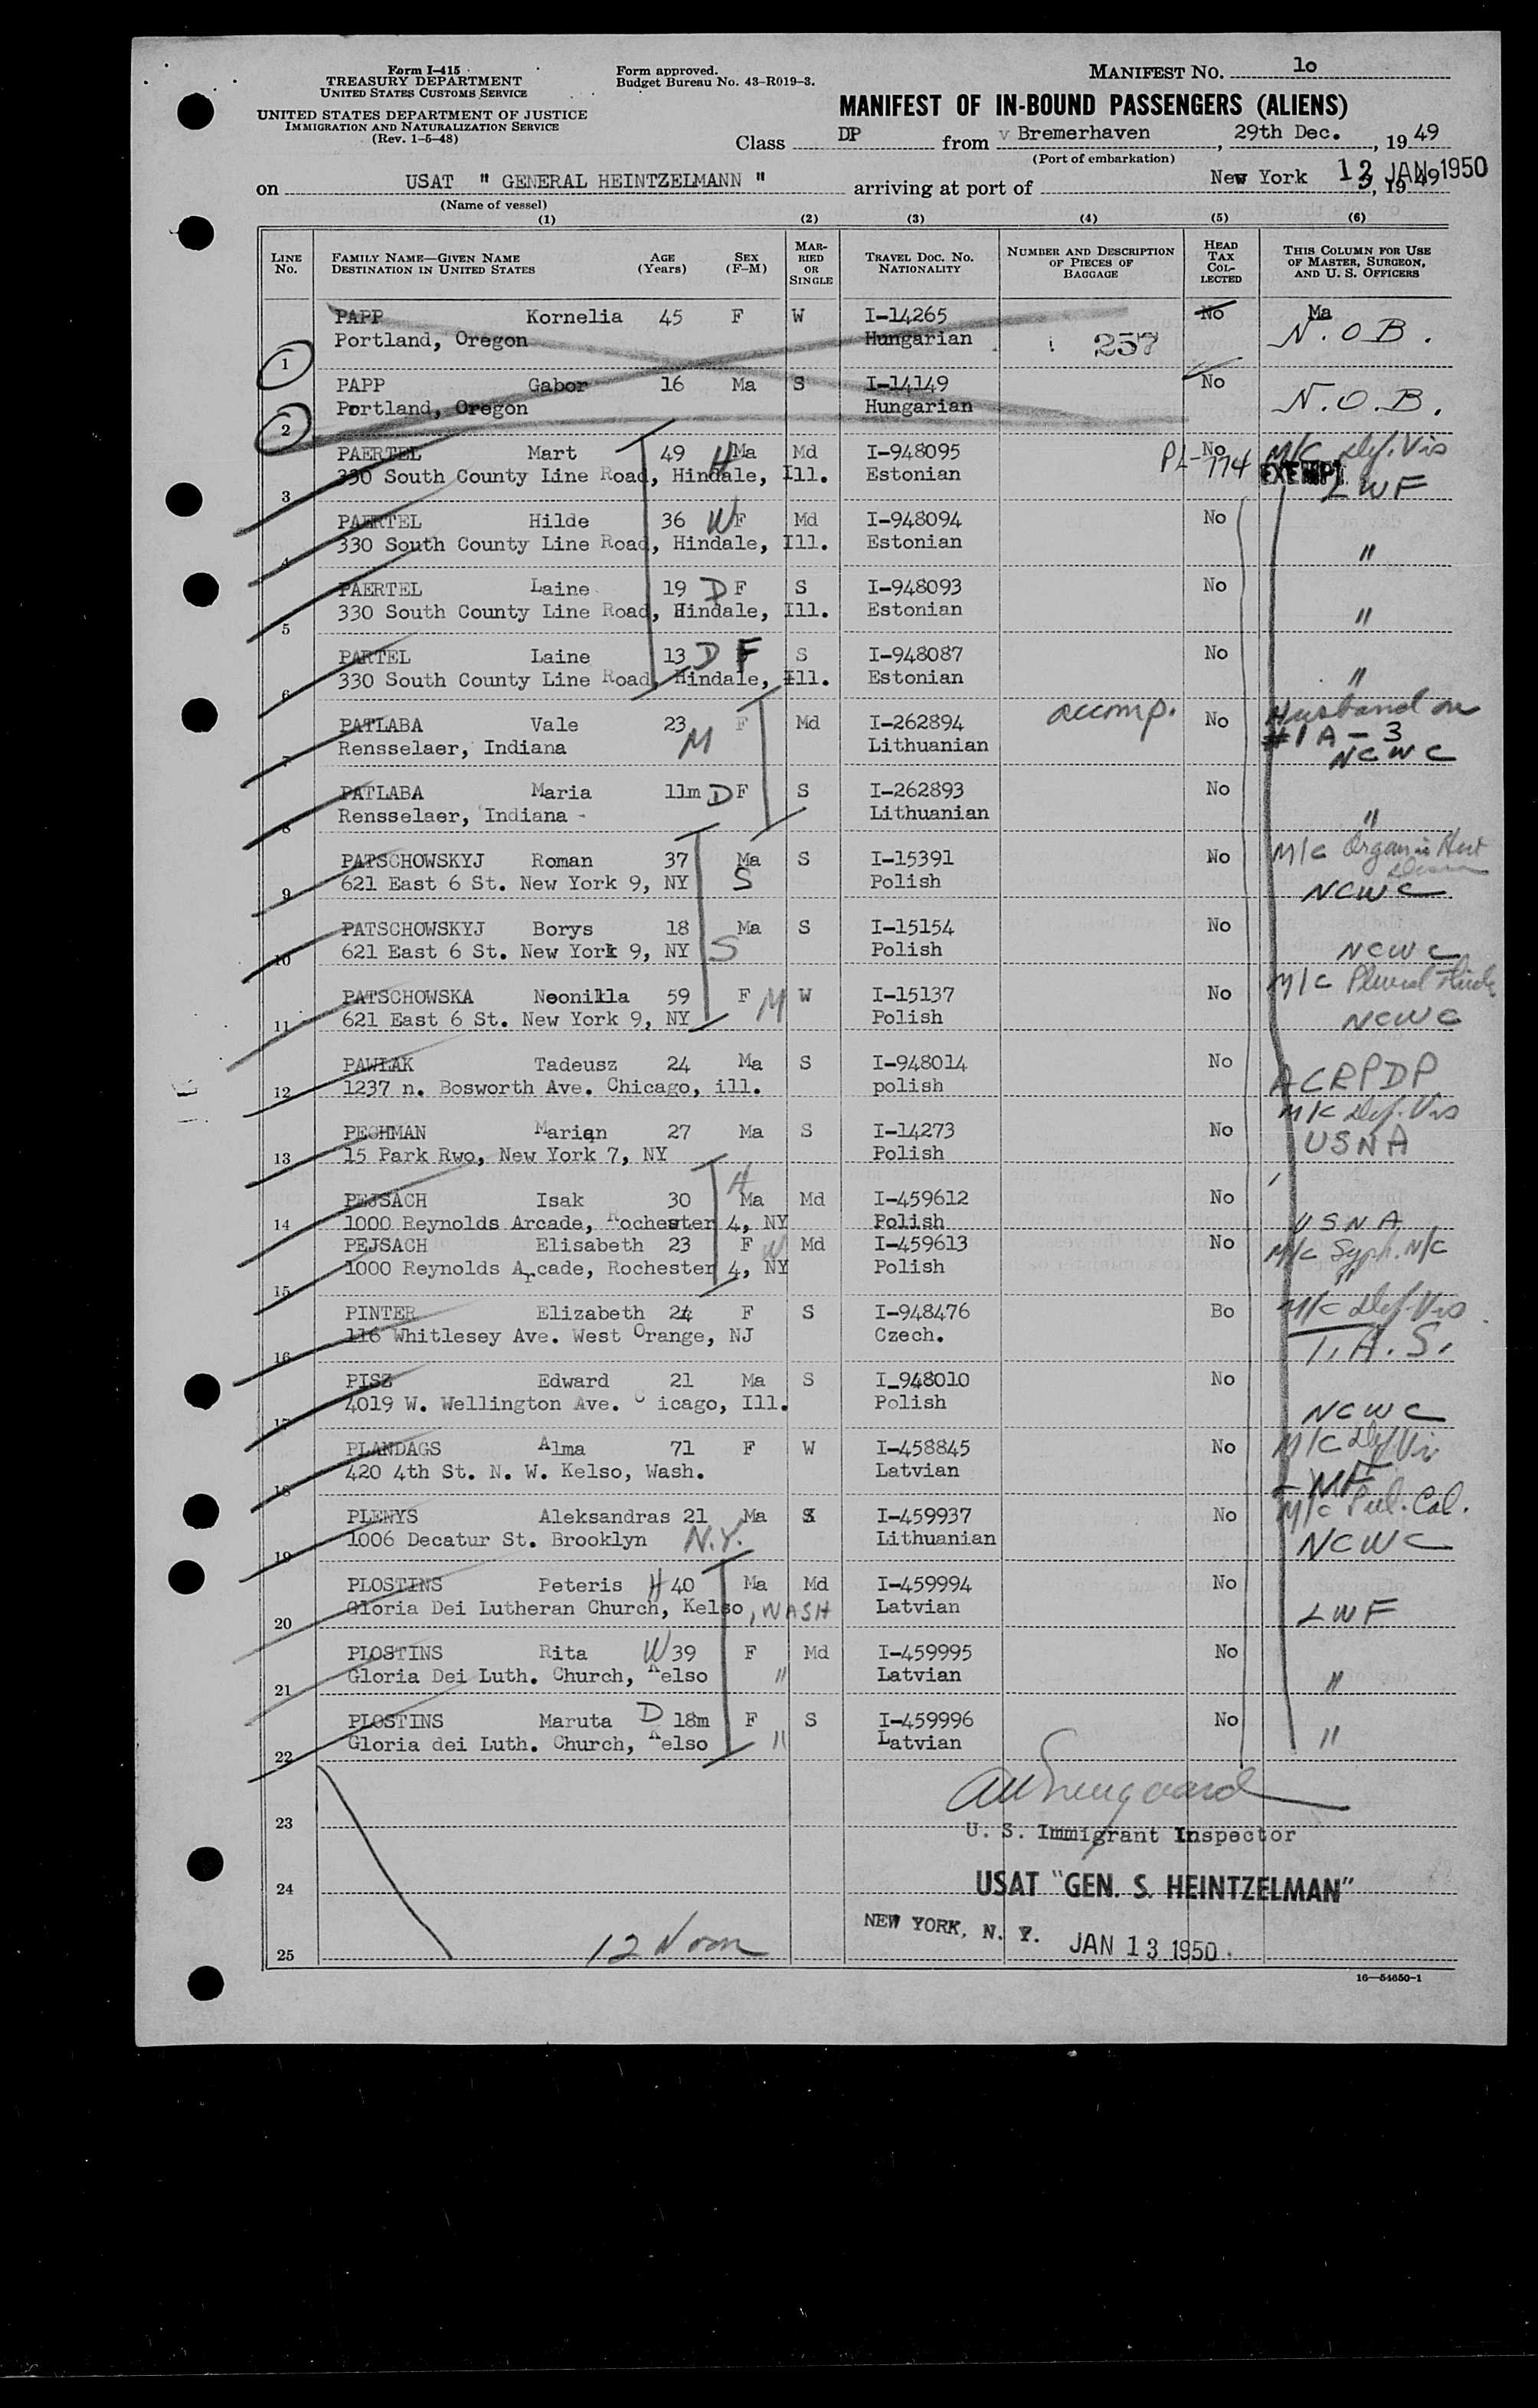 Form I-415
TREASURY DEPARTMENT
UNITED STATES CUSTOMS SERVICE
UNITED STATES DEPARTMENT OF JUSTICE
IMMIGRATION AND NATURALIZATION SERVICE
(Rev. 1-5-48)
Form approved.
Budget Bureau No. 43-R019-3.
MANIFEST NO. 1o
MANIFEST OF IN-BOUND PASSENGERS (ALIENS)
Class DP from v Bremerhaven, 29th Dec., 19 49
(Port of embarkation)
on USAT " GENERAL HEINTZELMANN " arriving at port of New York 13 JAN 1950, 19 49
(Name of vessel)
(1) (2) (3) (4) (5) (6)
LINE NO. FAMILY NAME—GIVEN NAME DESTINATION IN UNITED STATES AGE (Years) SEX (F-M) MARRIED OR SINGLE TRAVEL DOC. NO. NATIONALITY NUMBER AND DESCRIPTION OF PIECES OF BAGGAGE HEAD TAX COLLECTED THIS COLUMN FOR USE OF MASTER, SURGEON, AND U. S. OFFICERS
PAPP Kornelia 45 F W I-14265 No Ma
1 Portland, Oregon Hungarian 257 N.O.B.
PAPP Gabor 16 Ma S I-14149 No
2 Portland, Oregon Hungarian N.O.B.
PAERTEL Mart 49 H Ma Md I-948095 No M/C Def. Vis
3 330 South County Line Road, Hindale, Ill. Estonian PL-774 EXEMPT LWF
PAERTEL Hilde 36 W F Md I-948094 No
4 330 South County Line Road, Hindale, Ill. Estonian "
PAERTEL Laine 19 D F S I-948093 No
5 330 South County Line Road, Hindale, Ill. Estonian "
PARTEL Laine 13 D F S I-948087 No
6 330 South County Line Road, Hindale, Ill. Estonian "
PATLABA Vale 23 F Md I-262894 accomp. No Husband on #1A-3
7 Rensselaer, Indiana M Lithuanian NCWC
PATLABA Maria 11m D F S I-262893 No
8 Rensselaer, Indiana - Lithuanian "
PATSCHOWSKYJ Roman 37 Ma S I-15391 No M/C Organic Hrt
9 621 East 6 St. New York 9, NY S Polish NCWC
PATSCHOWSKYJ Borys 18 Ma S I-15154 No
10 621 East 6 St. New York 9, NY S Polish NCWC
PATSCHOWSKA Neonilla 59 F M W I-15137 No M/C Pleural
11 621 East 6 St. New York 9, NY Polish NCWC
PAWLAK Tadeusz 24 Ma S I-948014 No
12 1237 n. Bosworth Ave. Chicago, ill. polish ACRPDP
PECHMAN Marian 27 Ma S I-14273 No M/C Def. Vis
13 15 Park Rwo, New York 7, NY Polish USNA
PEJSACH Isak 30 H Ma Md I-459612 No
14 1000 Reynolds Arcade, Rochester 4, NY Polish USNA
PEJSACH Elisabeth 23 F W Md I-459613 No M/C Syph. N/C
15 1000 Reynolds Arcade, Rochester 4, NY Polish "
PINTER Elizabeth 24 F S I-948476 Bo M/C Def. Vis
16 116 Whitlesey Ave. West Orange, NJ Czech. I.A.S.
PISZ Edward 21 Ma S I_948010 No
17 4019 W. Wellington Ave. C icago, Ill. Polish NCWC
PLANDAGS Alma 71 F W I-458845 No M/C Def Vis
18 420 4th St. N. W. Kelso, Wash. Latvian LWF
PLENYS Aleksandras 21 Ma S I-459937 No M/C Pul. Cal.
19 1006 Decatur St. Brooklyn N.Y. Lithuanian NCWC
PLOSTINS Peteris H 40 Ma Md I-459994 No
20 Gloria Dei Lutheran Church, Kelso, WASH Latvian LWF
PLOSTINS Rita W 39 F Md I-459995 No
21 Gloria Dei Luth. Church, Kelso " Latvian "
PLOSTINS Maruta D 18m F S I-459996 No
22 Gloria dei Luth. Church, Kelso " Latvian "
23
U. S. Immigrant Inspector
24 USAT "GEN. S. HEINTZELMAN"
NEW YORK, N. Y. JAN 13 1950
25 12 Noon
16—54650-1